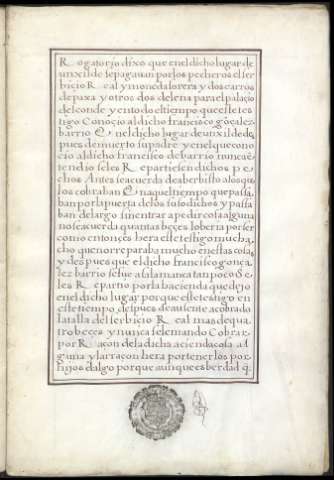 Rogatorio dixo que en el dicho lugar de
unxilde se pagauan por los pecheros el ser
bicio Real y moneda forera y dos carros
de paxa y otros dos de lena para el palaçio
del conde y en todo el tiempo que este tes
tigo Conoçio al dicho francisco gonçalez
barrio En el dicho lugar de unxilde des
pues de muerto su padre y en el que cono
cio al dicho francisco de barrio nunca en
tendio se les Repartiesen dichos pe
chos Antes se acuerda de aber bisto a los que
los cobraban En aquel tiempo que passa
ban por la puerta de los susodichos y passa
ban de largo sin entrar a pedir cossa alguna
no se acuerda quantas beçes lo beria por ser
como entonces hera este testigo mucha
cho que no rreparaba mucho en estas cossas
y despues que el dicho francisco gonça
lez barrio se fue a salamanca tampoco se
les Repartio por la hacienda que dejo
en el dicho lugar porque este testigo en
este tiempo despues de ausente a cobrado
la talla del serbicio Real mas de qua
tro beçes y nunca se le mando Cobrar
por Raçon de la dicha açienda cossa al
guna y la rraçon hera por tenerlos por
hijosdalgo porque aunque es berdad q